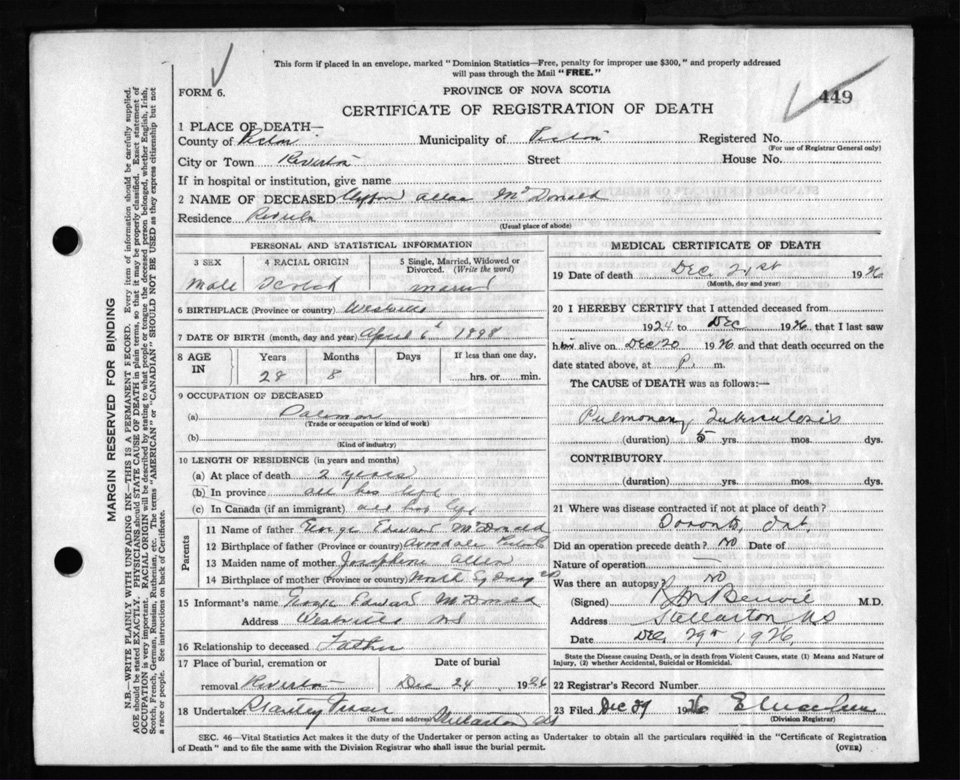 This form if placed in an envelope, marked "Dominion Statistics—Free, penalty for improper use $300," and properly addressed
will pass through the Mail "FREE."
FORM 6.
PROVINCE OF NOVA SCOTIA
449
CERTIFICATE OF REGISTRATION OF DEATH
1 PLACE OF DEATH—
County of Pictou Municipality of Pictou Registered No.
(For use of Registrar General only)
City or Town Riverton Street House No.
If in hospital or institution, give name
2 NAME OF DECEASED Allan McDonald
Residence Riverton
(Usual place of abode)
PERSONAL AND STATISTICAL INFORMATION
3 SEX 4 RACIAL ORIGIN 5 Single, Married, Widowed or
Divorced. (Write the word)
Male Scotch
6 BIRTHPLACE (Province or country) Westville
7 DATE OF BIRTH (month, day and year) April 6th 1898
8 AGE IN Years Months Days If less than one day,
28 8 hrs. or min.
9 OCCUPATION OF DECEASED
(a)
(Trade or occupation or kind of work)
(b)
(Kind of industry)
10 LENGTH OF RESIDENCE (in years and months)
(a) At place of death 2 years
(b) In province all his life
(c) In Canada (if an immigrant) all his life
Parents
11 Name of father George Edward McDonald
12 Birthplace of father (Province or country) Avondale
13 Maiden name of mother Josephine Allen
14 Birthplace of mother (Province or country) North
15 Informant's name George Edward McDonald
Address Westville NS
16 Relationship to deceased Father
17 Place of burial, cremation or Date of burial
removal Riverton Dec 24 1926
18 Undertaker Stanley Fraser
(Name and address) Stellarton NS
MEDICAL CERTIFICATE OF DEATH
19 Date of death Dec 21st 1926
(Month, day and year)
20 I HEREBY CERTIFY that I attended deceased from
1924 to Dec 1926, that I last saw
him alive on Dec 20 1926 and that death occurred on the
date stated above, at P. m.
The CAUSE of DEATH was as follows:—
Pulmonary Tuberculosis
(duration) 5 yrs. mos. dys.
CONTRIBUTORY
(duration) yrs. mos. dys.
21 Where was disease contracted if not at place of death?
Toronto, Ont.
Did an operation precede death? No Date of
Nature of operation
Was there an autopsy? No
(Signed) Benvie M.D.
Address Stellarton NS
Date Dec. 29th, 1926
State the Disease causing Death, or in death from Violent Causes, state (1) Means and Nature of
Injury, (2) whether Accidental, Suicidal or Homicidal.
22 Registrar's Record Number
23 Filed Dec 29 1926
(Division Registrar)
SEC. 46—Vital Statistics Act makes it the duty of the Undertaker or person acting as Undertaker to obtain all the particulars required in the "Certificate of Registration
of Death" and to file the same with the Division Registrar who shall issue the burial permit.
(OVER)
MARGIN RESERVED FOR BINDING
N.B.—WRITE PLAINLY WITH UNFADING INK—THIS IS A PERMANENT RECORD. Every item of information should be carefully supplied.
AGE should be stated EXACTLY. PHYSICIANS should STATE CAUSE OF DEATH in plain terms, so that it may be properly classified. Exact statement of
OCCUPATION is very important. RACIAL ORIGIN will be described by stating to what people or tongue the deceased person belonged, whether English, Irish,
Scotch, French, German, Russian, Ruthenian, etc. The terms "AMERICAN" or "CANADIAN" SHOULD NOT BE USED as they express citizenship but not
a race or people. See instructions on back of Certificate.